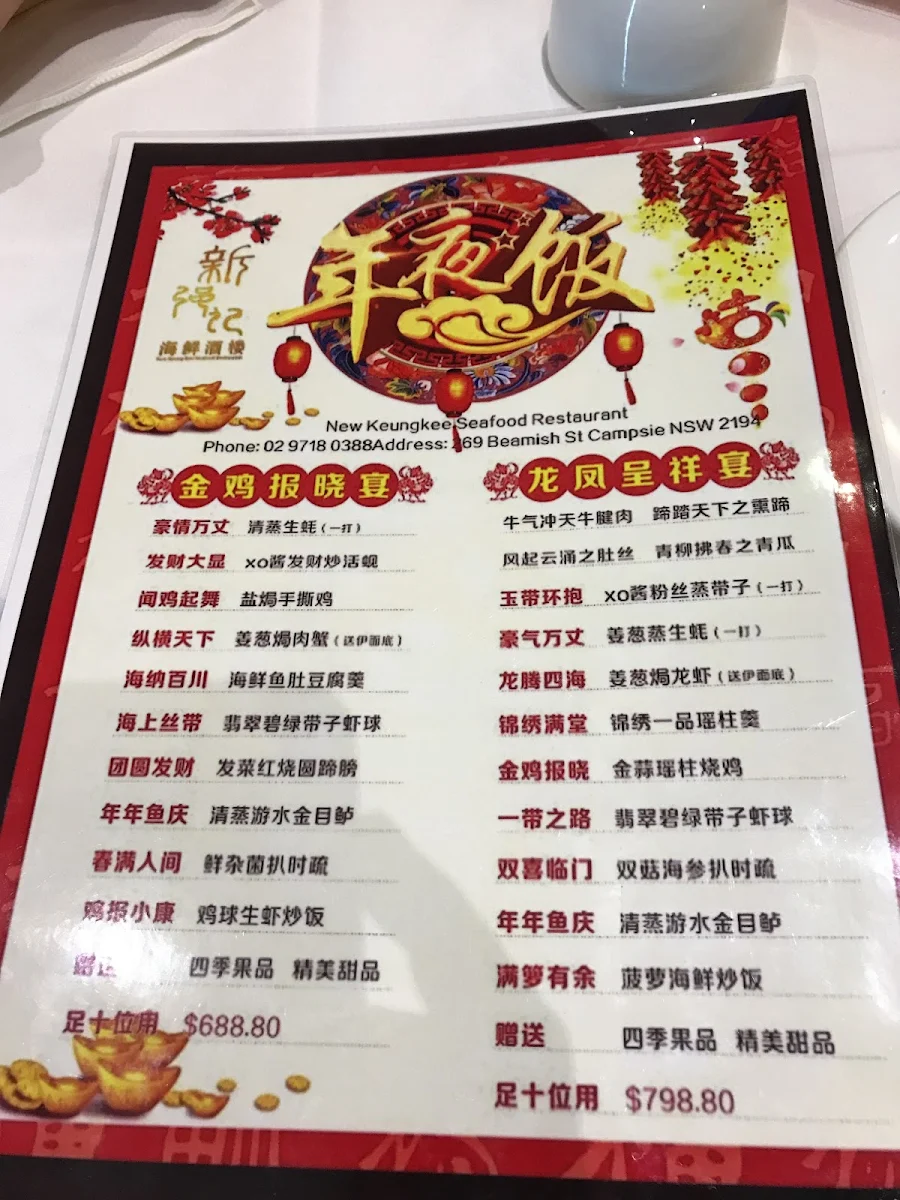 年夜饭
新
强记
海鲜酒楼
New Keungkee Seafood Restaurant
Phone: 02 9718 0388Address: 269 Beamish St Campsie NSW 2194
金鸡报晓宴
豪情万丈 清蒸生蚝(一打)
发财大显 xo酱发财炒活蚬
闻鸡起舞 盐焗手撕鸡
纵横天下 姜葱焗肉蟹(送伊面底)
海纳百川 海鲜鱼肚豆腐羹
海上丝带 翡翠碧绿带子虾球
团圆发财 发菜红烧圆蹄髈
年年鱼庆 清蒸游水金目鲈
春满人间 鲜杂菌扒时疏
鸡报小康 鸡球生虾炒饭
赠送 四季果品 精美甜品
足十位用 $688.80
龙凤呈祥宴
牛气冲天牛腱肉 蹄踏天下之熏蹄
风起云涌之肚丝 青柳拂春之青瓜
玉带环抱 xo酱粉丝蒸带子(一打)
豪气万丈 姜葱蒸生蚝(一打)
龙腾四海 姜葱焗龙虾(送伊面底)
锦绣满堂 锦绣一品瑶柱羹
金鸡报晓 金蒜瑶柱烧鸡
一带之路 翡翠碧绿带子虾球
双喜临门 双菇海参扒时疏
年年鱼庆 清蒸游水金目鲈
满箩有余 菠萝海鲜炒饭
赠送 四季果品 精美甜品
足十位用 $798.80